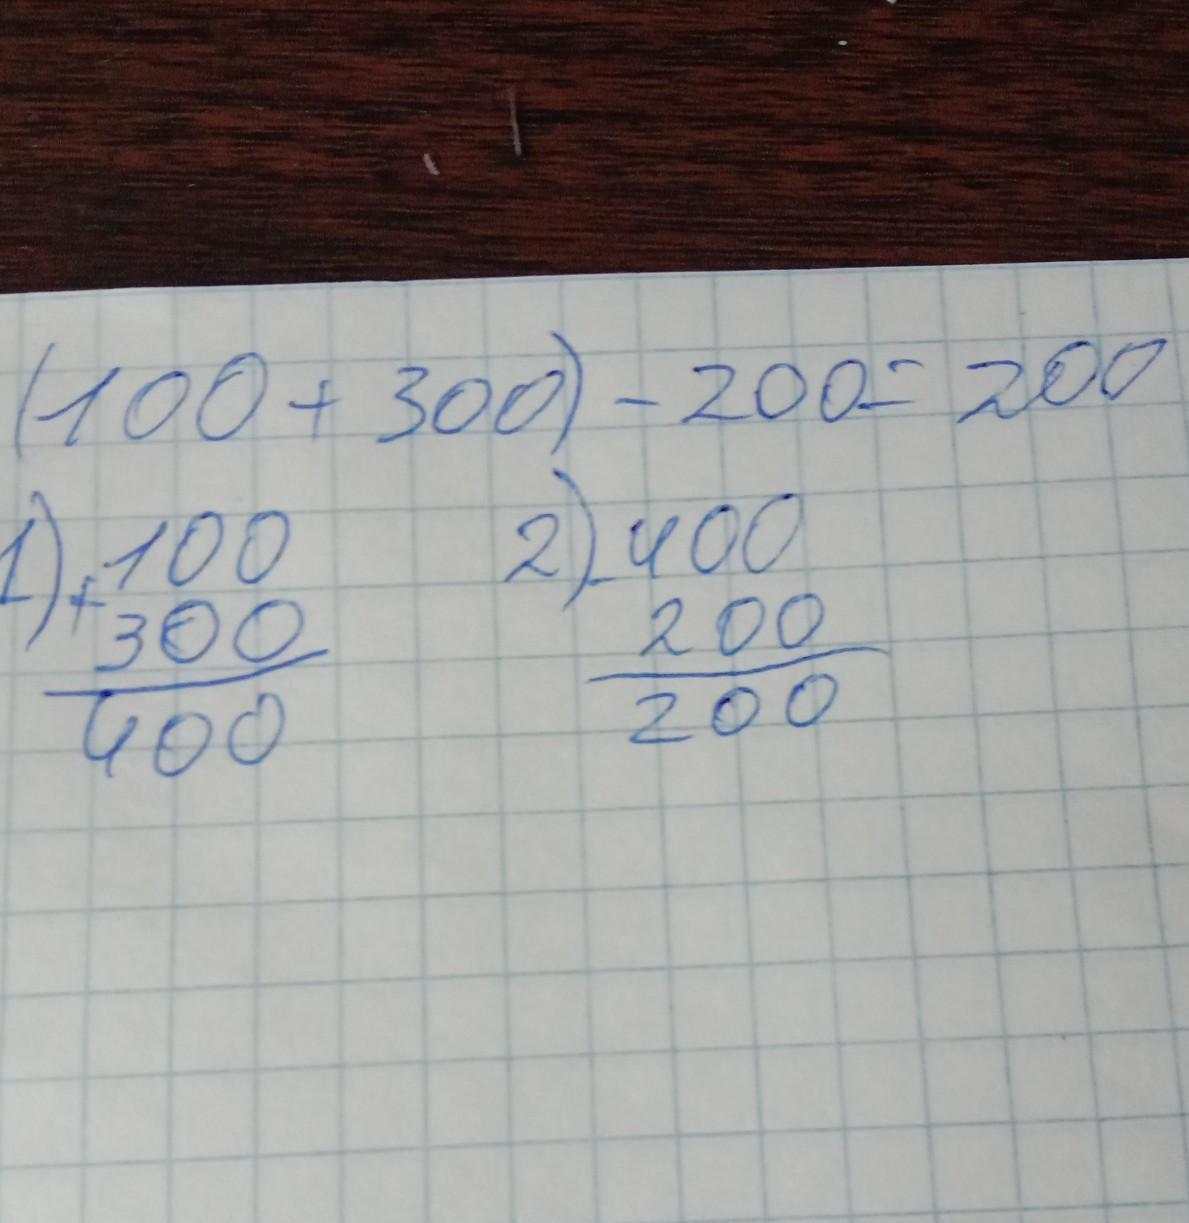 (100 + 300) - 200 = 200
1) + 100
300
400
2) - 400
200
200